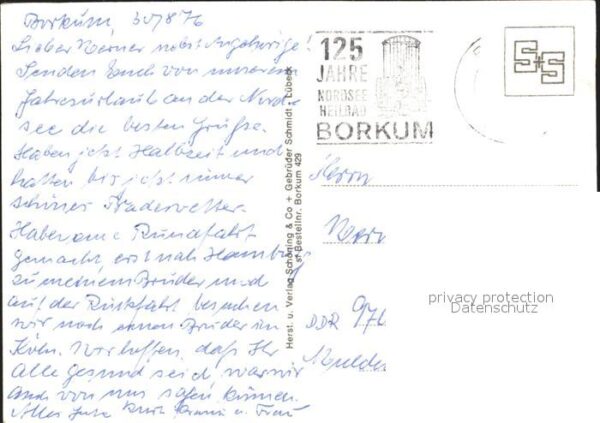 Borkum, 30/8 76
Lieber Werner nebst Angehörige!
Senden Euch von unserem
Jahresurlaub an der Nord-
see die besten Grüsse.
Haben jetzt Halbzeit und
hatten bis jetzt immer
schönes Badewetter.
Haben eine Rundfahrt
gemacht, erst nach Hamburg
zu meinem Bruder und
auf der Rückfahrt besuchen
wir noch einen Bruder in
Köln. Wir hoffen, daß Ihr
alle gesund seid, was wir
auch von uns sagen können.
Alles Gute Kurt u. Frau
Herst. u. Verlag Schöning & Co + Gebrüder Schmidt - Lübeck
Bestellnr. Borkum 429
125
JAHRE
NORDSEE
HEILBAD
BORKUM
S+S
Herrn
Wern
DDR 976
privacy protection
Datenschutz